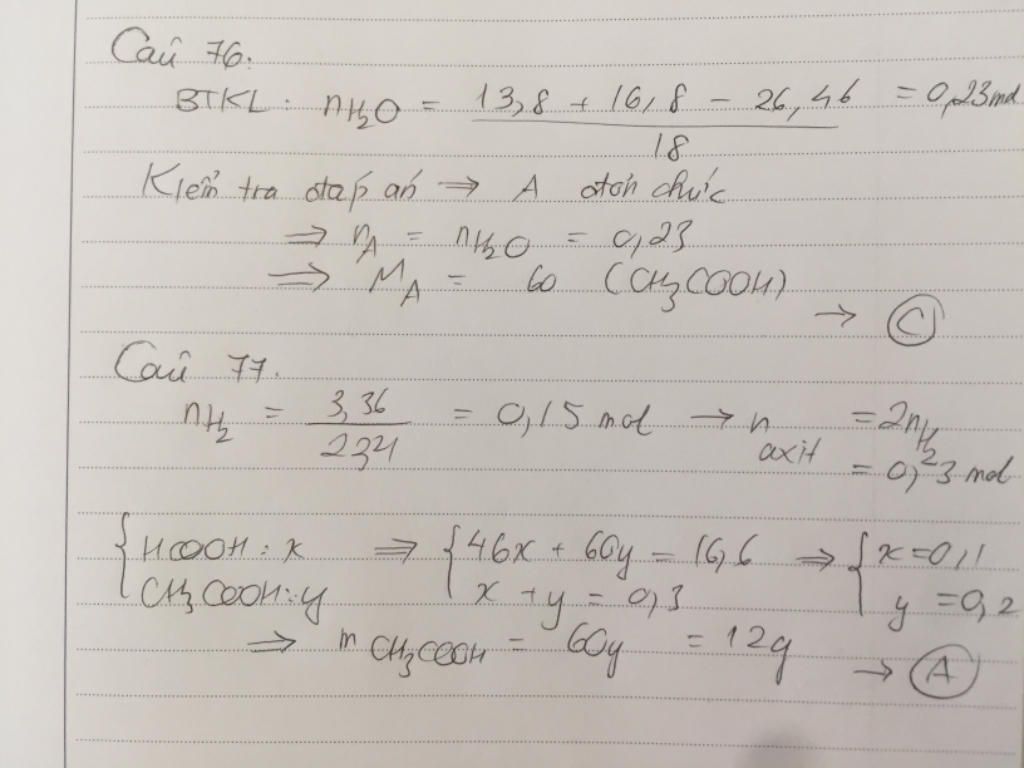 Câu 76.
BTKL: nH2O = 13,8 + 16,8 - 26,46 / 18 = 0,23 mol
Kiểm tra đáp án => A đơn chức
=> nA = nH2O = 0,23
=> MA = 60 (CH3COOH)
→ C
Câu 77.
nH2 = 3,36 / 22,4 = 0,15 mol → n axit = 2nH2
= 0,3 mol
{ HCOOH: x => { 46x + 60y = 16,6 => { x = 0,1
CH3COOH: y x + y = 0,3 y = 0,2
=> m CH3COOH = 60y = 12g
→ A